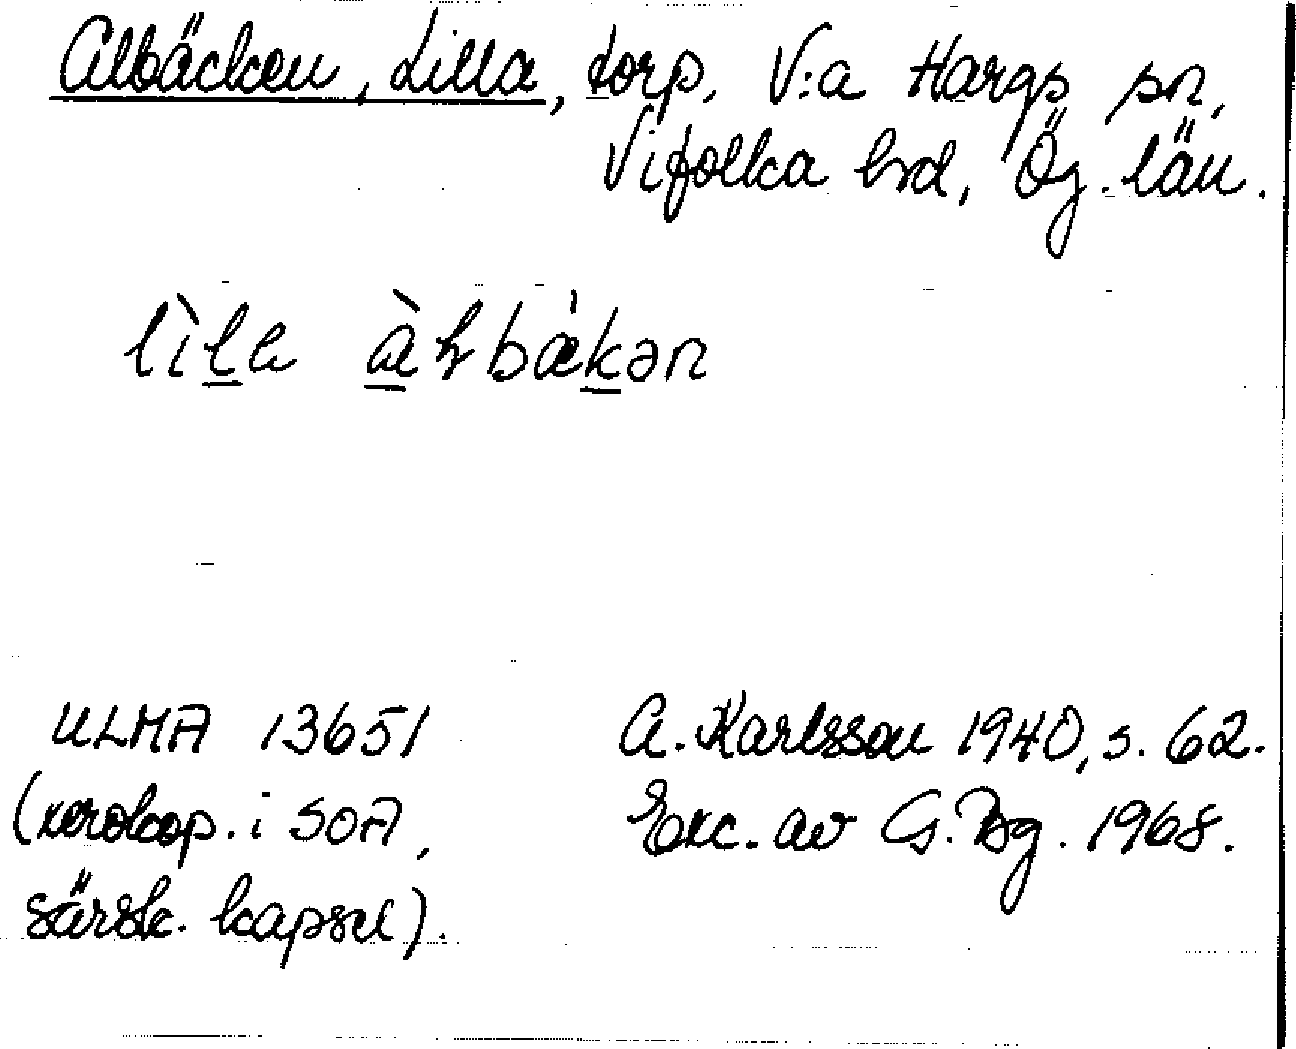 Albäcken, Lilla, torp, V:a Hargs sn,
Vifolka hrd, Ög. län.
lìla àɫbǽkən
ULMA 13651
(xerokop. i SOA,
särsk. kapsel).
A. Karlsson 1940, s. 62.
Exc. av G. Bg. 1968.